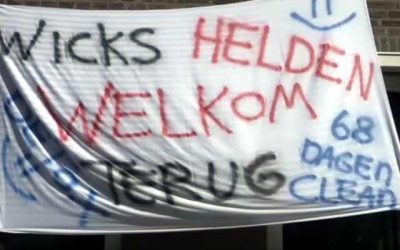 WICKS HELDEN
WELKOM
TERUG
68
DAGEN
CLEAN